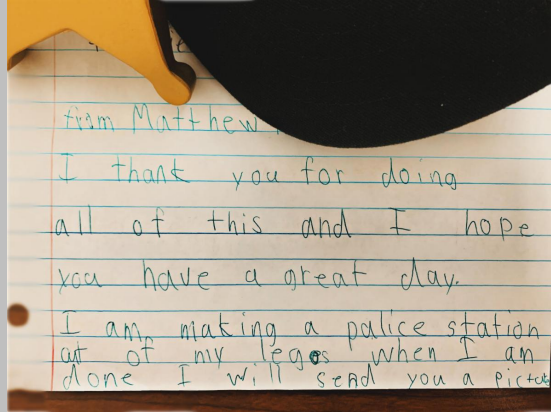 from Matthew
I thank you for doing
all of this and I hope
you have a great day.
I am making a palice station
out of my legos when I am
done I will send you a pictu